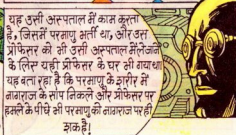 यह उसी अस्पताल में काम करता
है, जिसमें परमाणु भर्ती था, और उस
प्रोफेसर को भी उसी अस्पताल में लेजाने
के लिए यही प्रोफेसर के घर भी गया था
यह बता रहा है कि परमाणु के शरीर में
नागराज के सांप निकले और प्रोफेसर पर
हमले के पीछे भी परमाणु को नागराज पर ही
शक है।